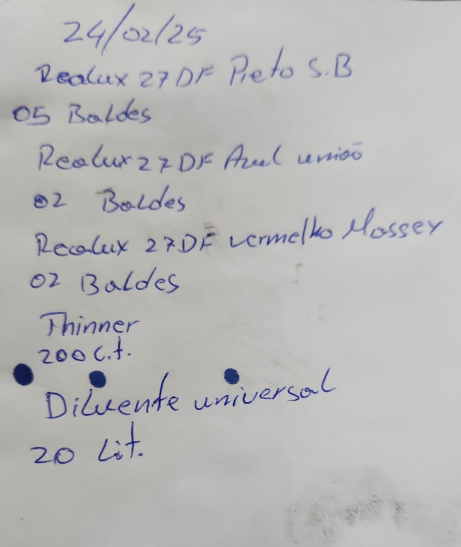 24/02/25
Realux 27DF Preto S.B
05 Baldes
Realux 27DF Azul união
02 Baldes
Realux 27DF vermelho Massey
02 Baldes
Thinner
200 L.t.
Diluente universal
20 Lit.